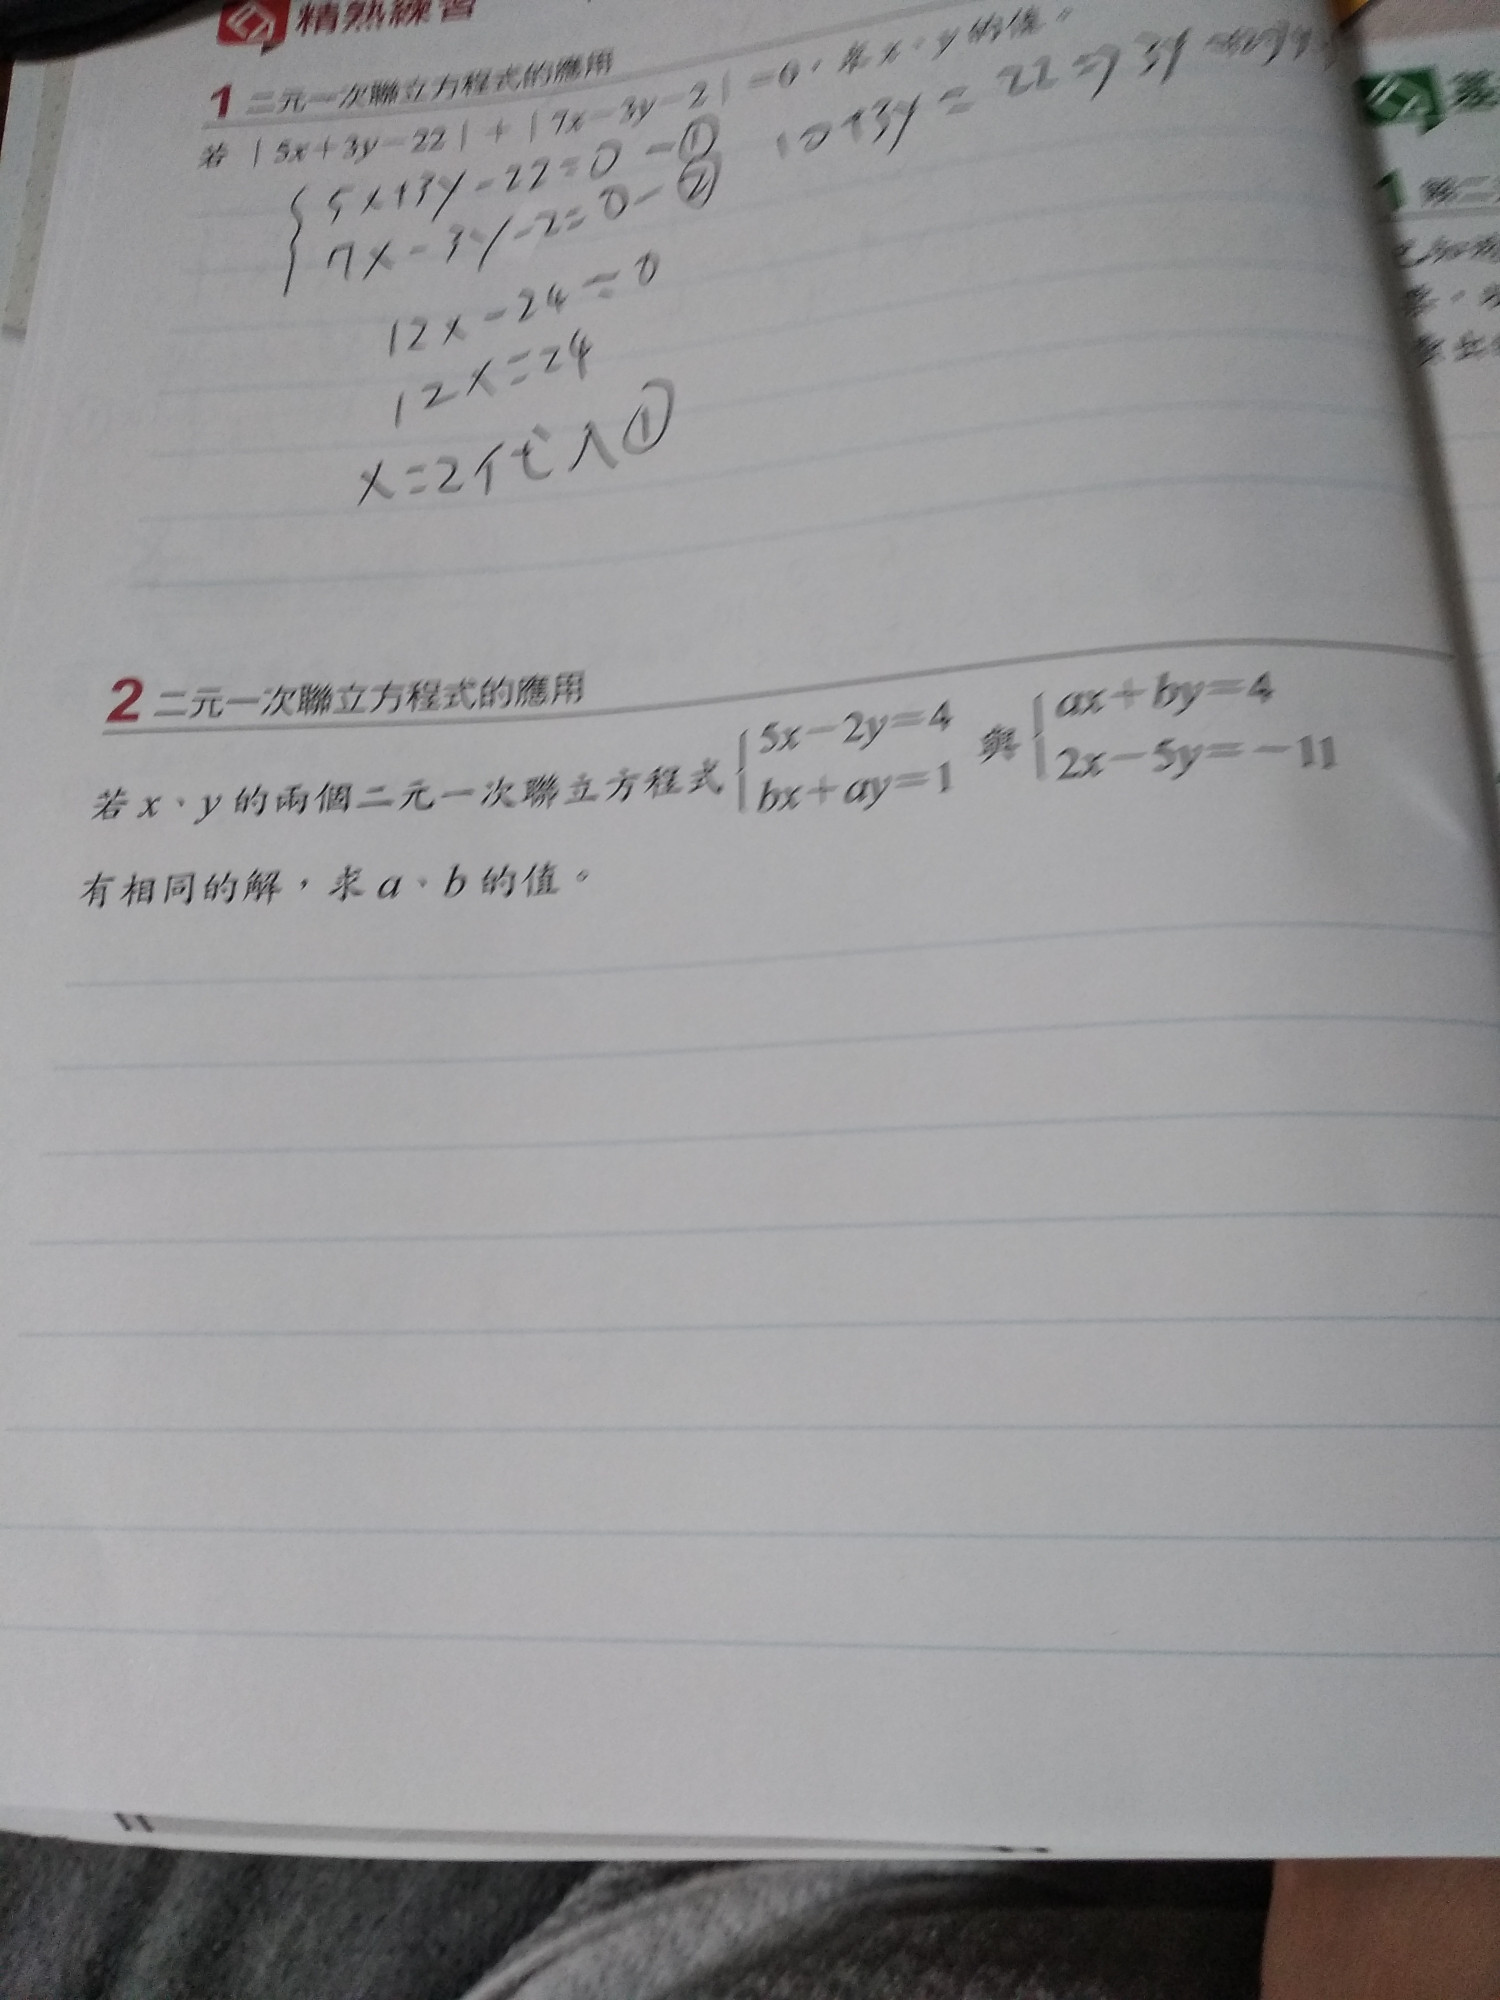 精熟練習
1 二元一次聯立方程式的應用
若 | 5x+3y-22 | + | 7x-3y-2 | =0，求 x、y 的值。
5x+3y-22=0-①
7x-3y-2=0-②
10+3y=22⇒3y
12x-24=0
12x=24
x=2代入①
2 二元一次聯立方程式的應用
若 x、y 的兩個二元一次聯立方程式 { 5x-2y=4 bx+ay=1 與 { ax+by=4 2x-5y=-11
有相同的解，求 a、b 的值。
1 解二
已知